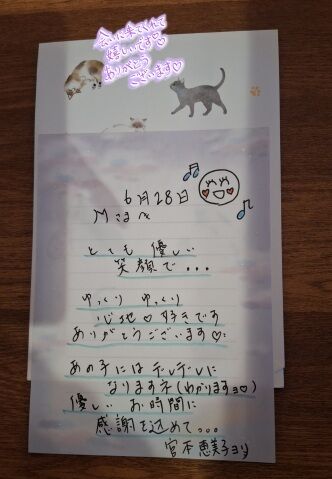 会いに来てくれて
嬉しいです♡
ありがとう
ございます♡
6月28日
Mさまへ
とても 優しい
笑顔で...
ゆっくり ゆっくり
心地♡好きです
ありがとうございます♡
あの子にはデレデレに
なりますネ(わかりますョ♡)
優しい お時間に
感謝を込めて...
宮本恵美子ヨリ